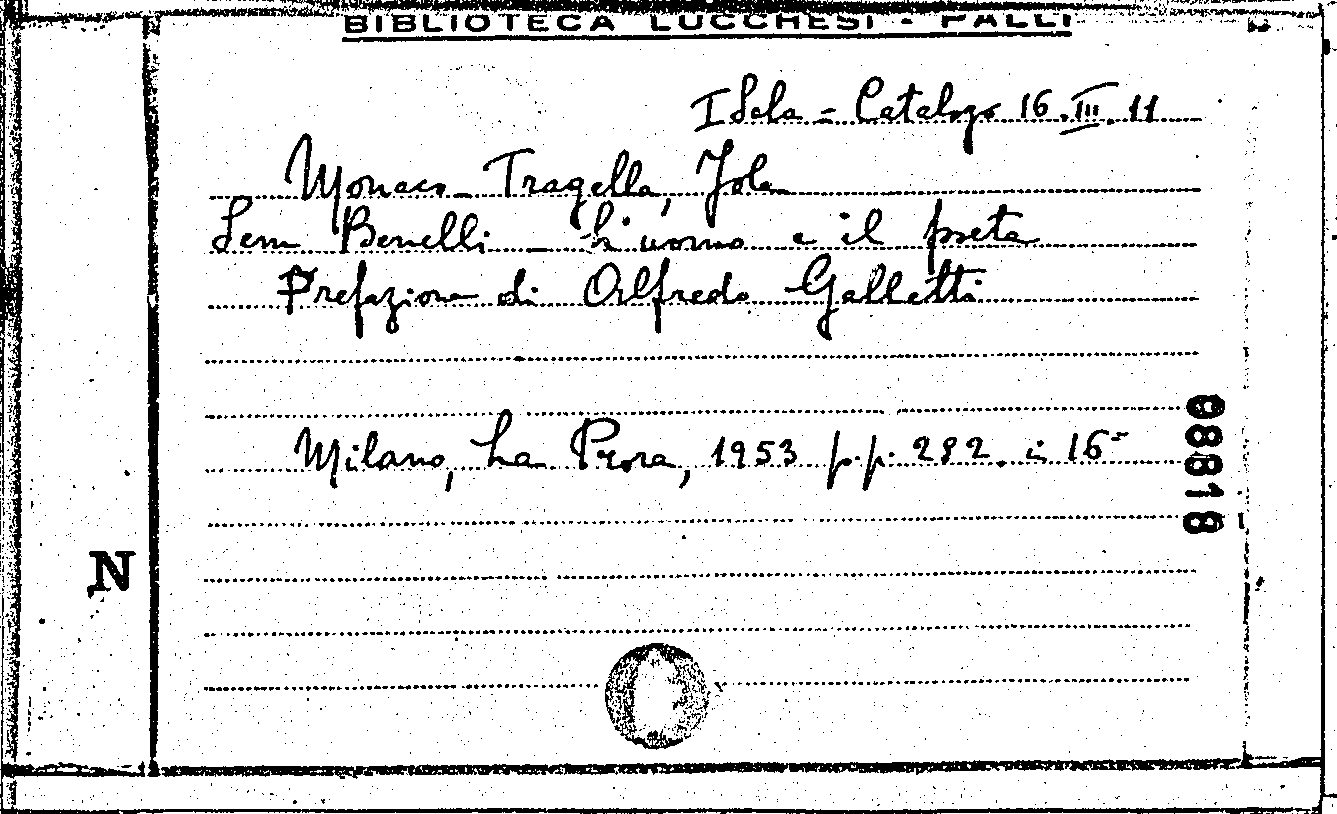 BIBLIOTECA LUCCHESI - PALLI
I Sala = Catalogo 16.III.11
Monaco Tragella, Jole
Sem Benelli – L'uomo e il poeta
Prefazione di Alfredo Galletti
Milano, La Prora, 1953 p.p. 282. in 16°
N